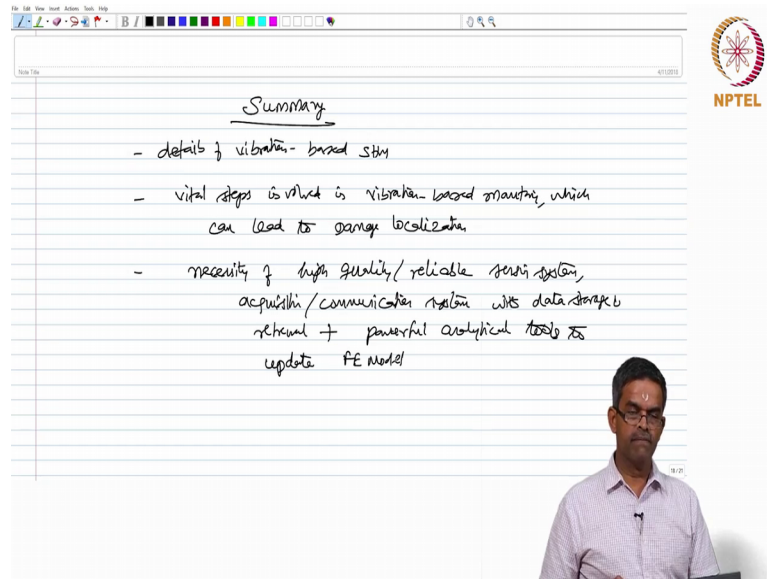 File Edit View Insert Actions Tools Help
B I
NPTEL
Note Title
4/11/2018
Summary
- details of vibration-based SHM
- vital steps involved in vibration-based monitoring, which
can lead to damage localization
- necessity of high quality/reliable sensing system,
acquisition/communication system with data storage &
retrieval + powerful analytical tools to
update FE model
18/21